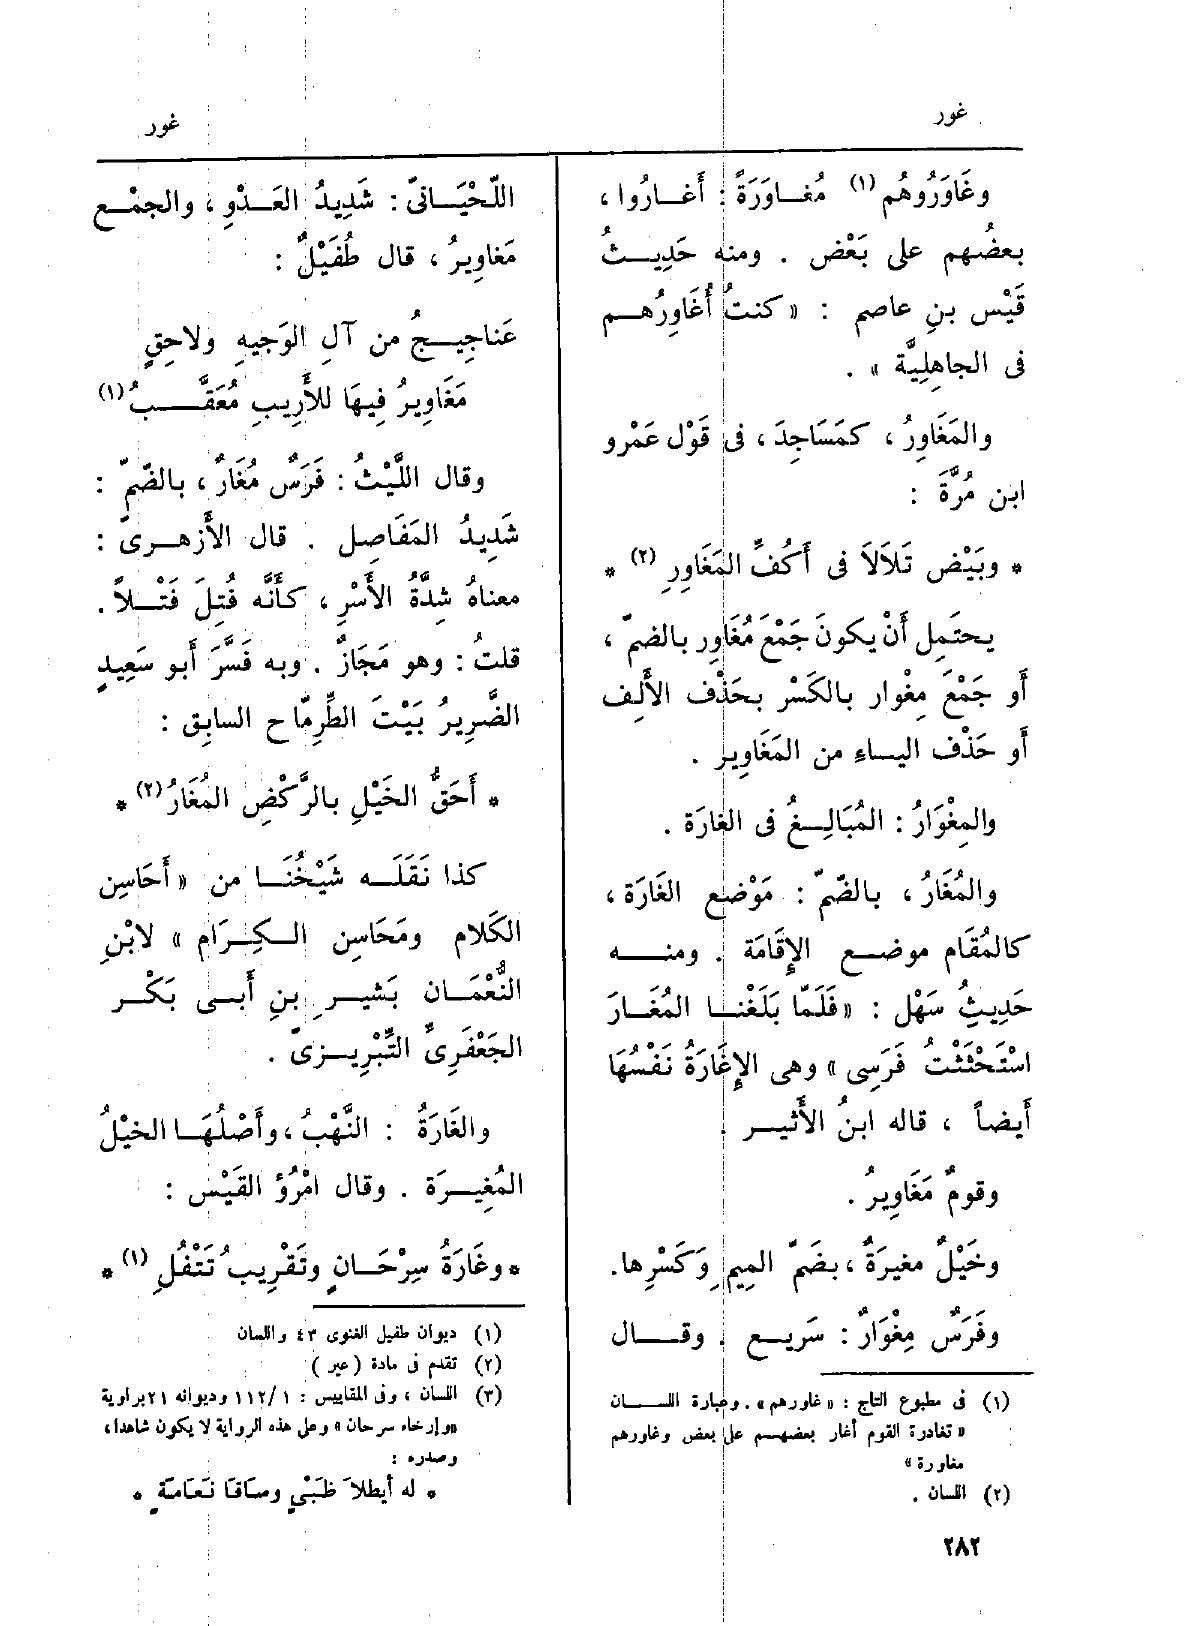 غور
غور
وغَاوَرُوهُم (١) مُغـاوَرَةً : أَغـارُوا ،
بعضُهم على بَعْض . ومنه حَدِيـثُ
قَيْس بنِ عاصم : « كنتُ أُغَاوِرُهـم
فى الجاهِلِيَّة » .
والمَغَاوِرُ ، كمَسَاجِدَ ، فى قَوْل عَمْرو
ابن مُرَّةَ :
* وبَيْض تَلَالَا فى أَكُفِّ المَغَاوِرِ (٢) *
يحتَمِل أَنْ يكونَ جَمْعَ مُغَاوِر بالضمّ ،
أو جَمْعَ مِغْوار بالكَسْر بحَذْف الأَلِف
أو حَذْف اليـاءِ من المَغَاوِير .
والمِغْوَارُ : المُبَالِـغُ فى الغارَة .
والمُغَارُ ، بالضّمّ : مَوْضع الغَارَة ،
كالمُقَام موضـع الإِقَامَة . ومنـه
حَدِيثِ سَهْل : « فَلَمّا بَلَغْنـا المُغَـارَ
اسْتَحْثَثْتُ فَرَسِى » وهى الإِغَارَةُ نَفْسُهَا
أَيضـاً ، قاله ابنُ الأَثيـر .
وقومٌ مَغَاوِيرُ .
وخَيْلٌ مغيرَةٌ ، بضَمّ الميمِ وَكَسْرِها.
وفَرَسٌ مِغْوَارٌ : سَرِيـع . وقـال
(١) فى مطبوع التاج : « غاورهم ». وعبارة اللسـان
« تغادرة القوم أغار بعضهـم على بعض وغاورهم
مغاورة »
(٢) اللسان .
٢٨٢
اللِّحْيَـانىّ : شَدِيدُ العَـدْوِ ، والجمْـع
مَغاوِيرُ ، قال طُفَيْلٌ :
عَناجِيـجُ من آلِ الوَجيهِ ولاحِقٍ
مَغَاوِيرُ فِيهَا للأَرِيبِ مُعَقَّـبُ (١)
وقال اللَّيْثُ : فَرَسٌ مُغَارٌ ، بالضّمّ :
شَدِيدُ المَفَاصِل . قال الأَزهـرىّ :
معناهُ شِدَّةُ الأَسْرِ ، كأَنَّه فُتِلَ فَتْـلاً .
قلتُ : وهو مَجَازٌ . وبه فَسَّرَ أَبو سَعِيدٍ
الضَّرِيرُ بَيْتَ الطِّرِمّاح السابِق :
* أَحَقُّ الخَيْلِ بالرَّكْضِ المُغَارُ (٢) *
كذا نَقَلَـه شَيْخُنَـا من « أَحَاسِن
الكَلَام ومَحَاسِن الـكِـرَام » لابْنِ
النُّعْمَـان بَشيـرِ بنِ أَبـى بَكْـر
الجَعْفَرِىِّ التِّبْرِيـزىّ .
والغَارَةُ : النَّهْبُ ، وأَصْلُهَـا الخيْلُ
المُغِيـرَة . وقال امْرُؤ القَيْس :
* وغَارَةُ سِرْحَـانٍ وتَقْرِيبُ تَتْفُلِ (١) *
(١) ديوان طفيل الغنوى ٤٣ واللسان
(٢) تقدم فى مادة ( عير )
(٣) اللسان ، وفى المقاييس : ١ /١١٢ وديوانه ٢١ براوية
«وإرخاء سرحان» وعلى هذه الرواية لا يكون شاهدا ،
وصدره :
* له أيطلاَ ظَبْىٍ وسـاقَا نَعَامـةٍ *